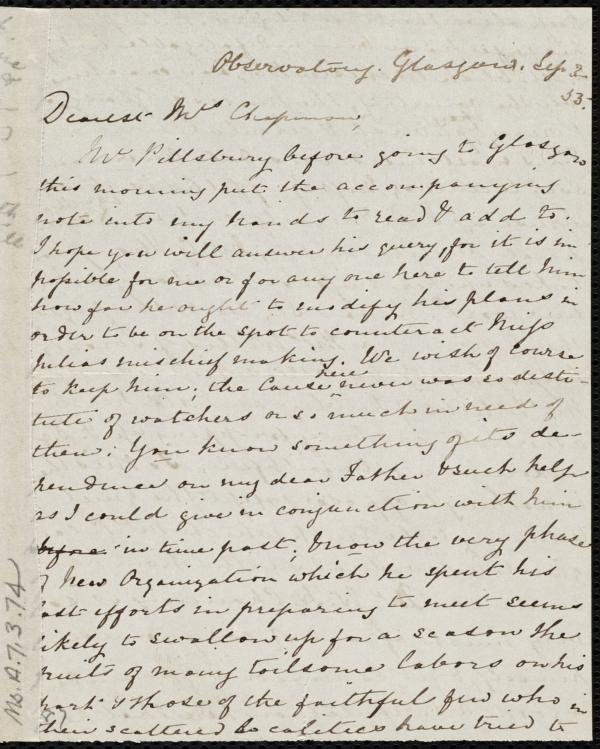 Observatory. Glasgow. Sep 3
53.
Dearest Mrs Chapman,
Mr Pillsbury before going to Glasgow
this morning put the accompanying
note into my hands to read & add to.
I hope you will answer his query, for it is im-
possible for me or for any one here to tell him
how far he ought to modify his plans in
order to be on the spot to counteract Miss
Julias mischief making. We wish of course
to keep him; the Cause here never was so desti-
tute of watchers or so much in need of
them. You know something of its de-
pendence on my dear Father & such help
as I could give in conjunction with him
before in time past; & now the very phase
of New Organization which he spent his
last efforts in preparing to meet seems
likely to swallow up for a season the
fruits of many toilsome labors on his
part & those of the faithful few who in
their scattered localities have tried to
Ms. A. 7. 3. 74